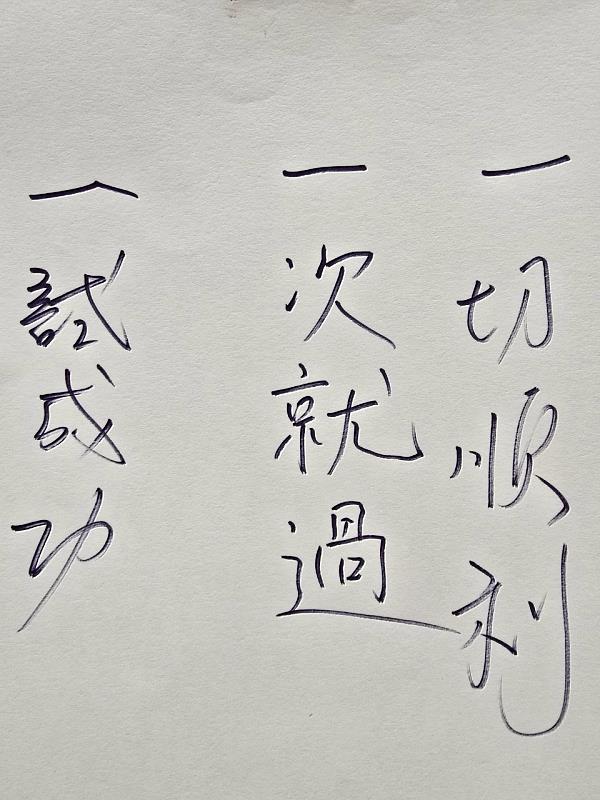 一切順利
一次就過
一試成功